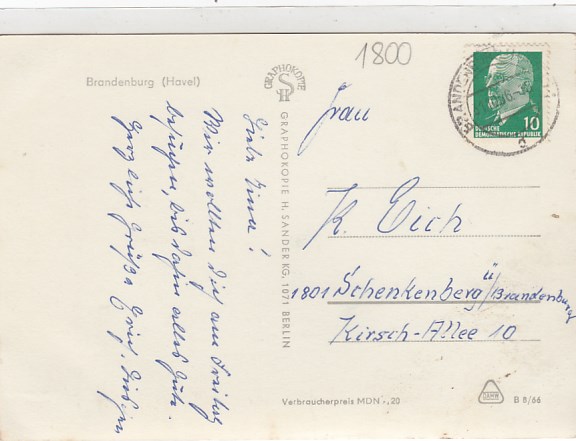 Brandenburg (Havel)
1800
GRAPHOKOPIE
H S
GRAPHOKOPIE H. SANDER KG, 1071 BERLIN
Wir wollten Dich am Freitag
besuchen, bis dahin alles Gute.
Herzliche Grüße
10
DEUTSCHE
DEMOKRATISCHE REPUBLIK
Frau
K. Eich
1801 Schenkenberg ü/Brandenburg
Kirsch-Allee 10
Verbraucherpreis MDN -,20
B 8/66